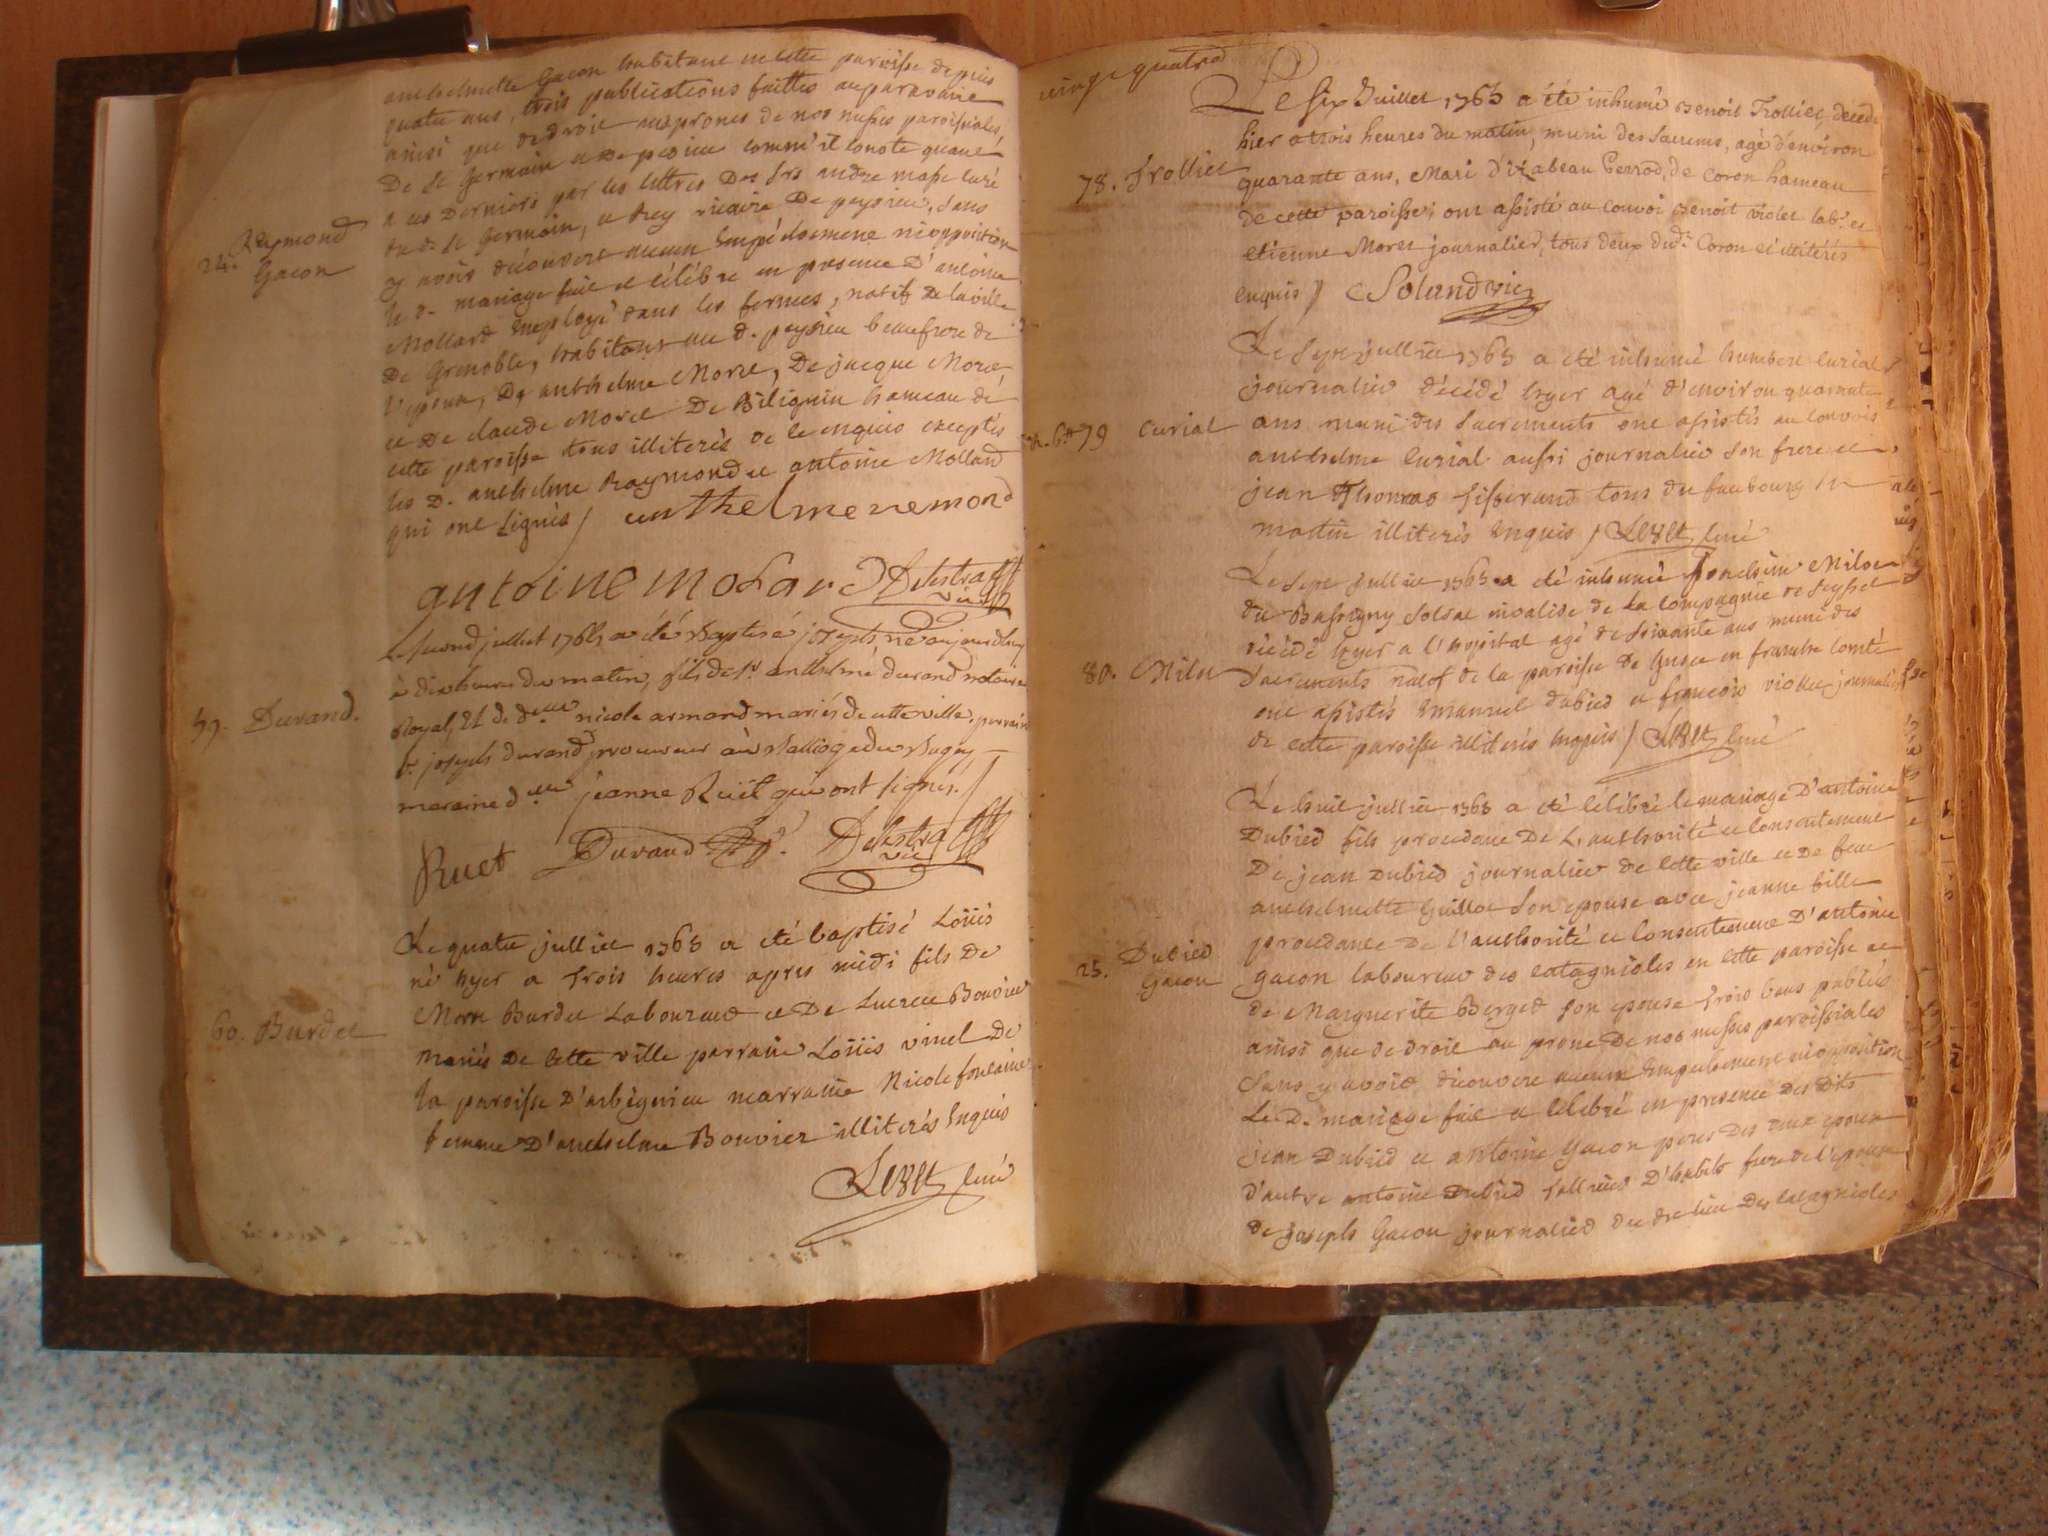 anthelmette Gacon habitant en cette paroisse depuis
quatre ans, trois publications faittes auparavant
ainsi que de droit aux prones de nos messes paroissiales,
De St Germain et De peyrieu comm'il conste quant
a ces Derniers par les lettres Des Srs curé
du d. St Germain, et Rey vicaire De peyrieu, sans
y avoir découvert aucun Empéchement ni opposition
le d. mariage fait et célébré en presence D'antoine
Mollard Employé dans les fermes, natif De la ville
De Grenoble, habitant au d. peyrieu beaufrere de
l'epoux, De anthelme Morel, De jacque Morel
et De claude Morel De Biliguin hameau de
cette paroisse tous illiterés de ce enquis exceptés
les D. anthelme Raymond et antoine Mollard
qui ont signés / anthelme remond
24. Reymond
Gacon
antoine molar Delestra
vic
Le second juillet 1765 a été Baptisé joseph né aujourdhuy
à dix heures du matin, fils de sr anthelme durand notaire
Royal, Et de delle nicole armand mariés de cette ville. parrain
sr. joseph durand procureur au Balliage du Bugey,
maraine delle jeanne Ruet qui ont signés /
59. Durand.
Ruet Durand Delestra
vic
Le quatre julliet 1765 a été baptisé Loüis
né hyer a trois heures apres midi fils de
Burdet Laboureur et De Lucrece Bouvier
mariés De cette ville parrain Loüis vinel De
la paroisse D'arbignieu marraine Nicole fontaine
femme D'anthelme Bouvier illiterés Enquis
60. Burdet
curé
vingt quatre
Le six Juillet 1765 a été inhumé Benoit Trollier, decedé
hier a trois heures du matin, muni des sacrems, agé d'environ
quarante ans, Mari d'izabeau Perrod, de Coron hameau
de cette paroisse; ont assisté au convoi Benoit violet labr. et
etienne Morel journalier, tous deux dudt Coron et illitérés
enquis / Soland vic
78. Trollier
Le sept julliet 1765 a été inhumé humbert curial
journalier décédé hyer agé d'environ quarante
ans muni des sacrements ont assistés au convois
anthelme curial aussi journalier son frere et
jean Thomas tisserand tous du faubourg st
martin illiterés Enquis / curé
79 Curial
Le sept julliet 1765 a été inhumé Milot
du Bassigny soldat invalide de la compagnie de seyssel
décédé hyer a l'hopital agé de soixante ans muni des
sacrements natif de la paroisse de en franche comté
ont assistés Emanuel dubied et francois viollet journaliers
de cette paroisse illiterés enquis / curé
80. Milot
Le huit julliet 1765 a été célébré le mariage D'antoine
Dubied fils procedant De L'authorité et consentement
De jean Dubied journalier de cette ville et De feue
anthelmette Guillot son epouse avec jeanne fille
procedante De l'authorité et consentement D'antoine
gacon laboureur des catagnioles en cette paroisse et
de Marguerite Berger son epouse trois bans publiés
ainsi que de droit au prone De nos messes paroissiales
sans y avoir découvert aucun Empechement ni opposition
Le D. mariage fait et célebré en presence des dits
jean Dubied et antoine Gacon peres Des deux epoux
d'autre antoine Dubied tallieur D'habits frere de l'epoux
de joseph Gacon journalier du dt lieu Des catagnioles
25. Dubied
Gacon